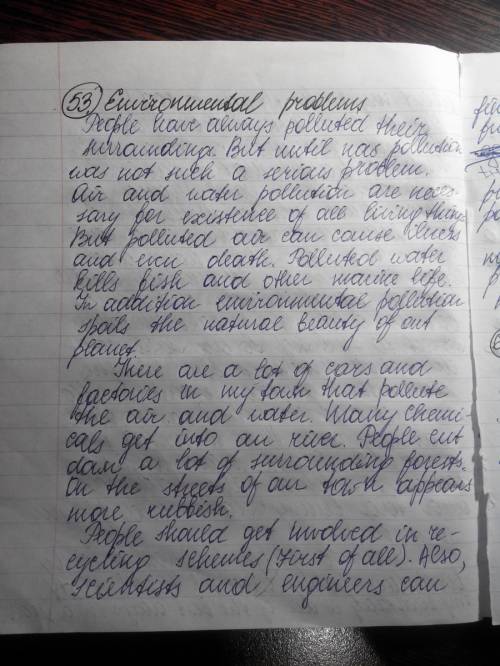 53) Environmental problems
People have always polluted their
surroundings. But until nas pollution
was not such a serious problem.
Air and water pollution are neces-
sary for existence of all living things
But polluted air can cause illness
and even death. Polluted water
kills fish and other marine life.
In addition environmental pollution
spoils the natural beauty of out
planet.
There are a lot of cars and
factories in my town that pollute
the air and water. Many chemi-
cals get into our river. People cut
down a lot of surrounding forests.
On the streets of our town appears
more rubbish.
People should get involved in re-
cycling schemes (First of all). Also,
scientists and engineers can